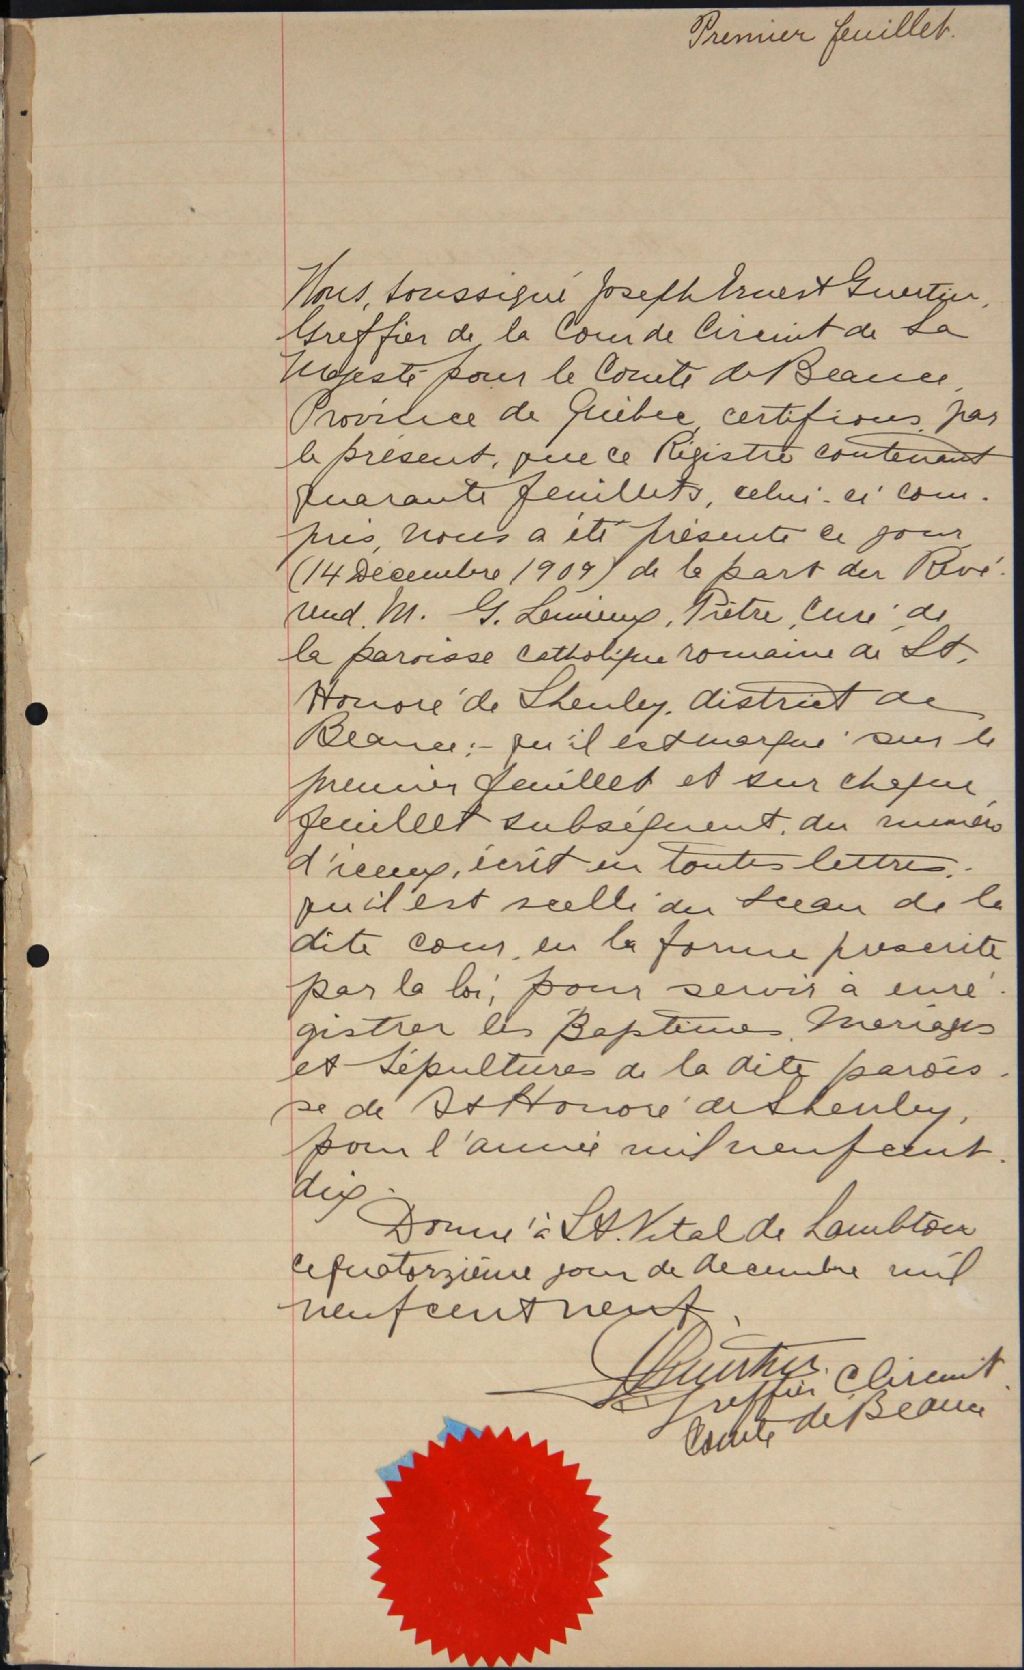 Premier feuillet.
Nous, soussigné Joseph Ernest Guertin,
Greffier de la Cour de Circuit de Sa
Majesté pour le Comté de Beauce,
Province de Québec, certifions, par
le présent, que ce Régistre contenant
quarante feuillets, celui-ci com-
pris, nous a été présenté ce jour
(14 Décembre 1909) de la part du Révé-
rend M. G. Lemieux, Prêtre, Curé de
la paroisse catholique romaine de St.
Honoré de Shenley, district de
Beauce:- qu'il est marqué sur le
premier feuillet et sur chaque
feuillet subséquent, du numéro
d'iceux, écrit en toutes lettres,-
qu'il est scellé du sceau de la
dite cour, en la forme prescrite
par la loi, pour servir à enré-
gistrer les Baptêmes, Mariages
et Sépultures de la dite parois-
se de St Honoré de Shenley,
pour l'année mil neuf cent-
dix.
Donné à St. Vital de Lambton
ce quatorzième jour de décembre mil
neuf cent neuf.
Guertin
Greffier C Circuit
Comté de Beauce